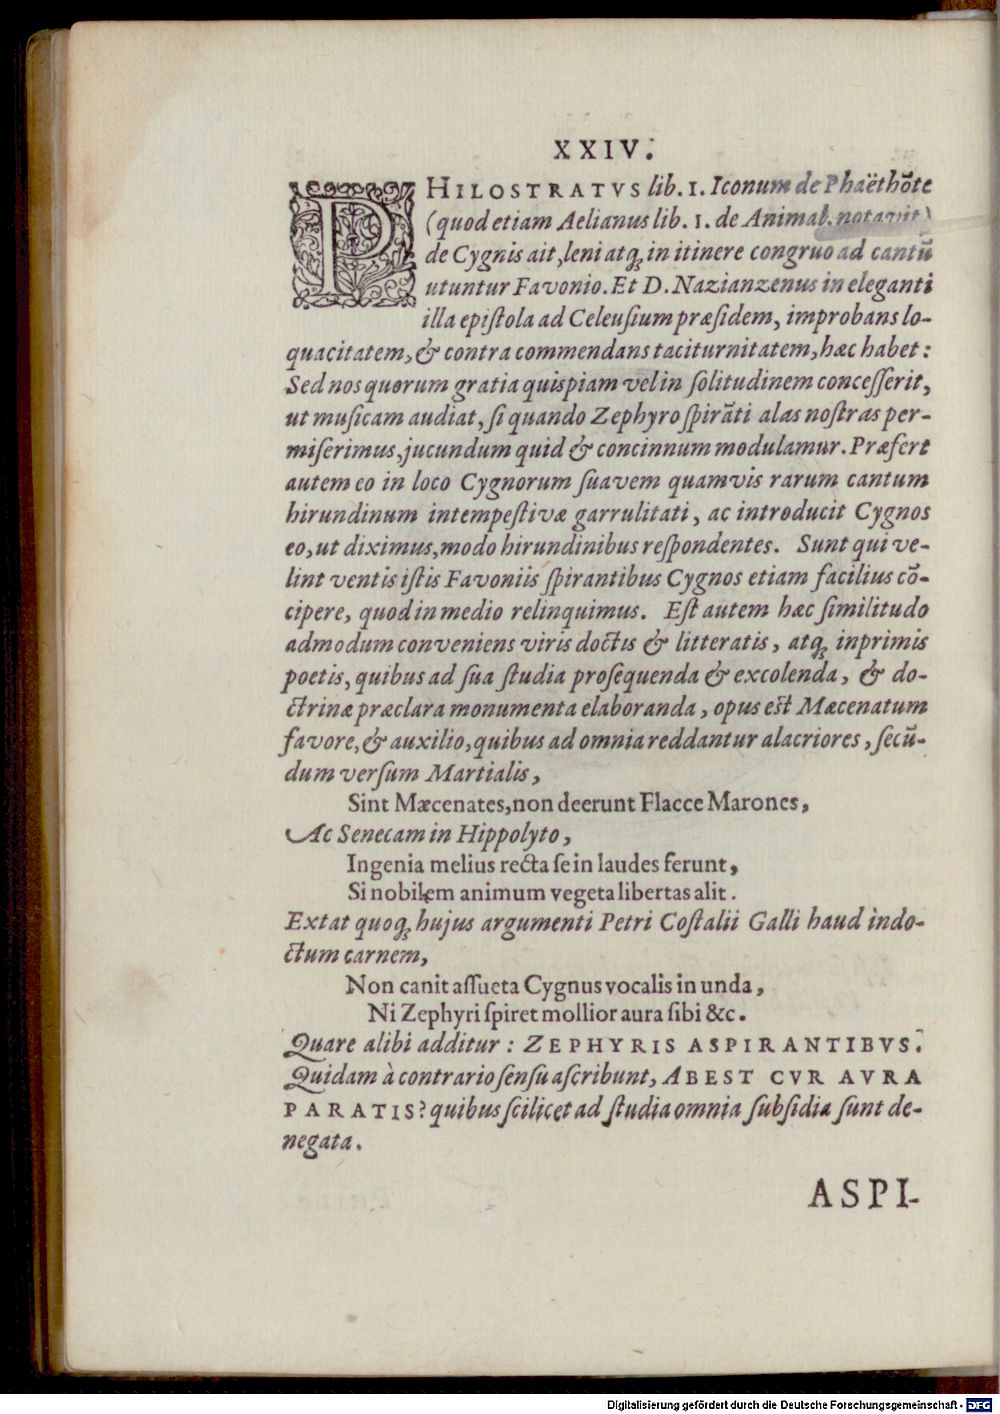 XXIV.
PHILOSTRATVS lib. 1. Iconum de Phaëthōte
(quod etiam Aelianus lib. 1. de Animal. notavit)
de Cygnis ait, leni atq; in itinere congruo ad cantū
utuntur Favonio. Et D. Nazianzenus in eleganti
illa epiſtola ad Celeuſium præſidem, improbans lo-
quacitatem, & contra commendans taciturnitatem, hæc habet:
Sed nos quorum gratia quispiam vel in ſolitudinem conceſſerit,
ut muſicam audiat, ſi quando Zephyro ſpirāti alas noſtras per-
miſerimus, jucundum quid & concinnum modulamur. Præfert
autem eo in loco Cygnorum ſuavem quamvis rarum cantum
hirundinum intempeſtivæ garrulitati, ac introducit Cygnos
eo, ut diximus, modo hirundinibus reſpondentes. Sunt qui ve-
lint ventis iſtis Favoniis ſpirantibus Cygnos etiam facilius cō-
cipere, quod in medio relinquimus. Eſt autem hæc ſimilitudo
admodum conveniens viris doctis & litteratis, atq; inprimis
poetis, quibus ad ſua ſtudia proſequenda & excolenda, & do-
ctrinæ præclara monumenta elaboranda, opus eſt Mæcenatum
favore, & auxilio, quibus ad omnia reddantur alacriores, ſecū-
dum verſum Martialis,
Sint Mæcenates, non deerunt Flacce Marones,
Ac Senecam in Hippolyto,
Ingenia melius recta ſe in laudes ferunt,
Si nobilem animum vegeta libertas alit.
Extat quoq; hujus argumenti Petri Coſtalii Galli haud indo-
ctum carnem,
Non canit aſſueta Cygnus vocalis in unda,
Ni Zephyri ſpiret mollior aura ſibi &c.
Quare alibi additur: ZEPHYRIS ASPIRANTIBVS.
Quidam à contrario ſenſu aſcribunt, ABEST CVR AVRA
PARATIS? quibus ſcilicet ad ſtudia omnia ſubſidia ſunt de-
negata.
ASPI-
Digitalisierung gefördert durch die Deutsche Forschungsgemeinschaft - DFG